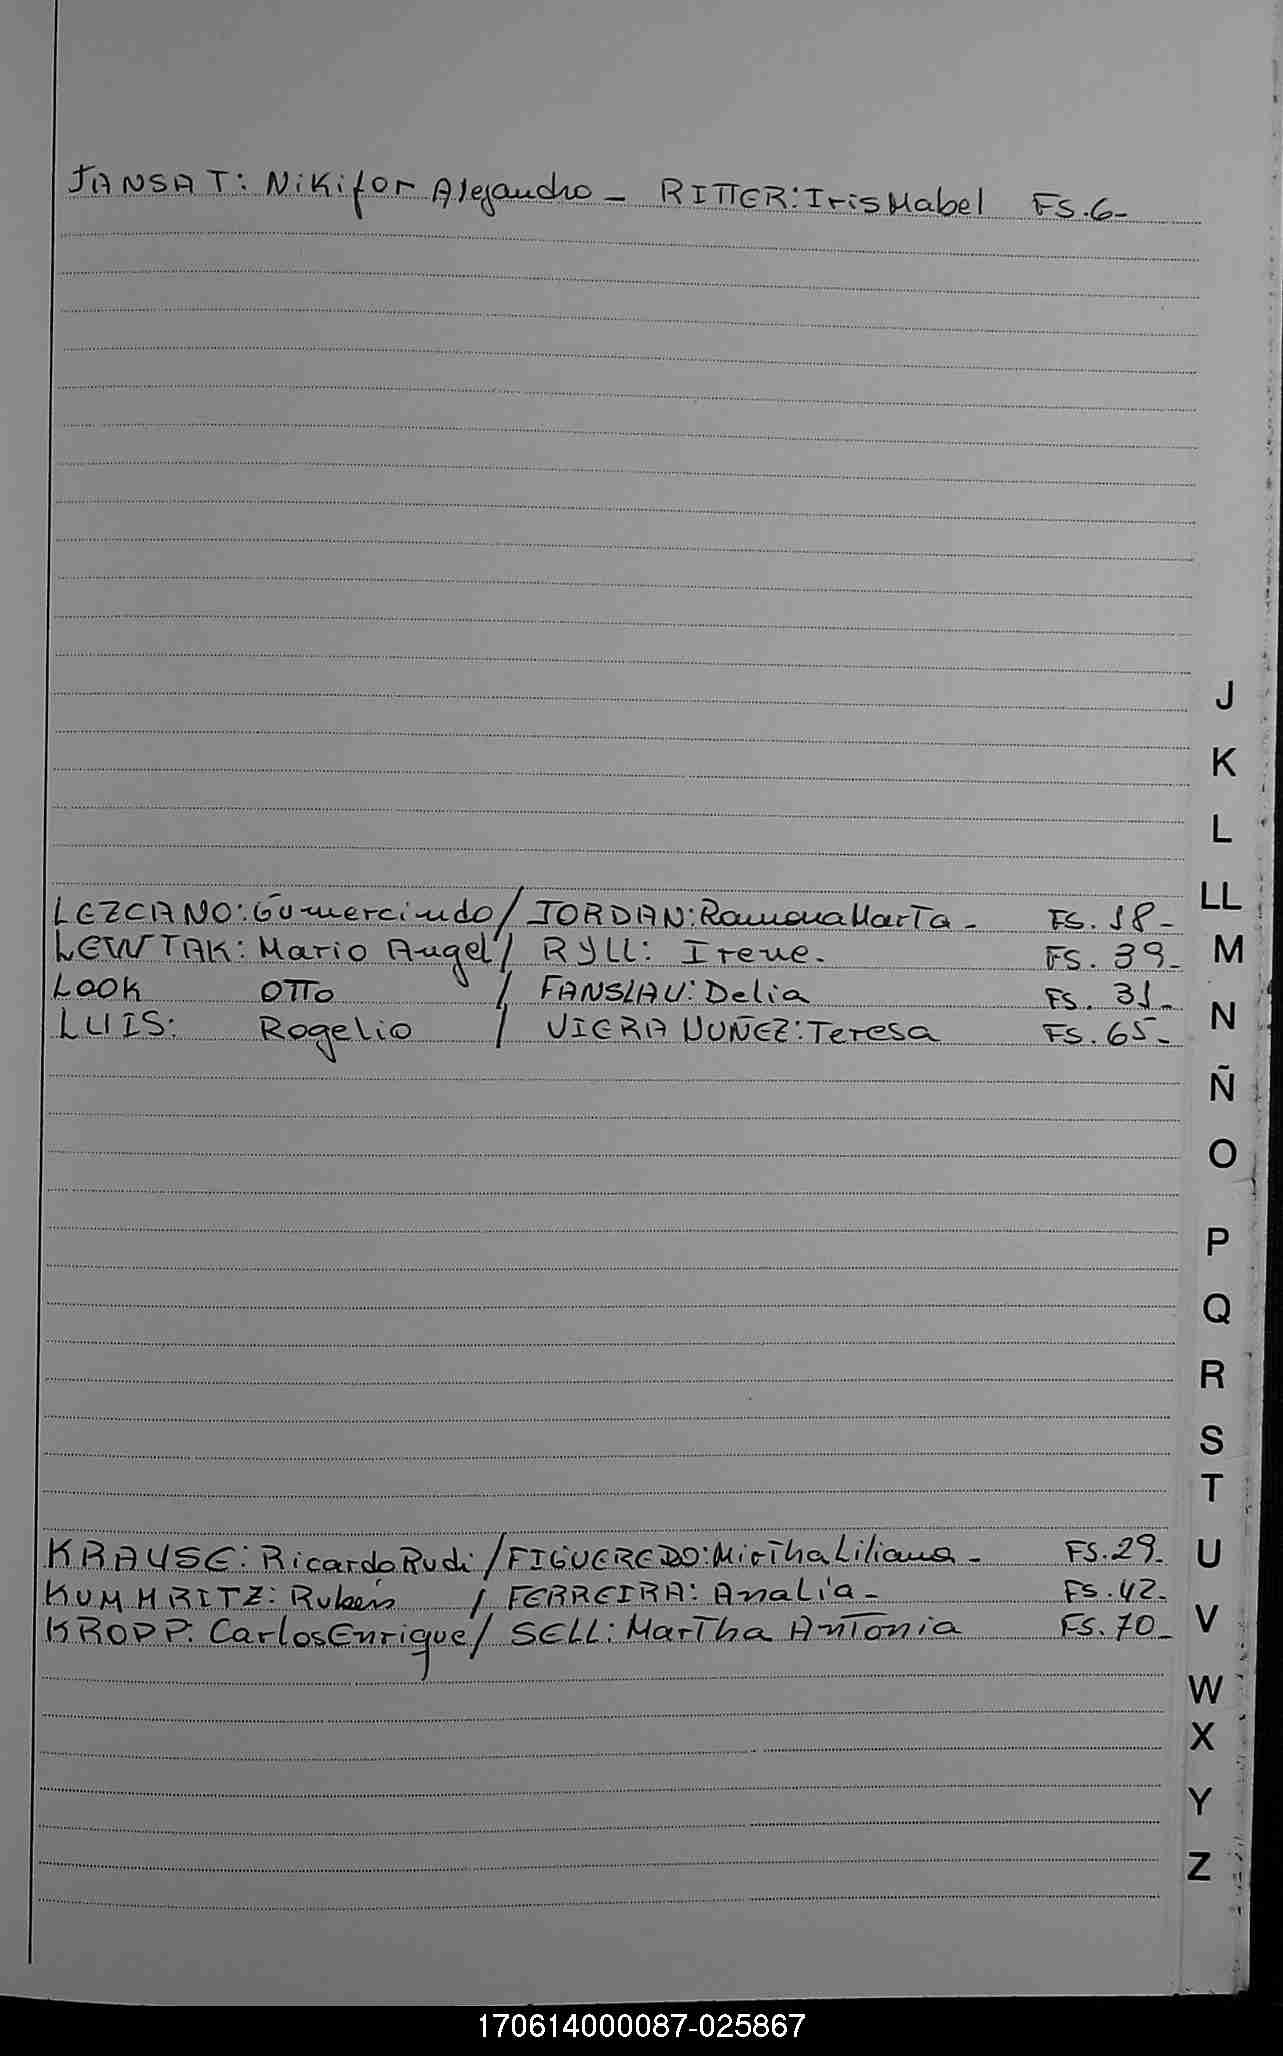 JANSAT: Nikifor Alejandro - RITTER: Iris Mabel FS.6-
J
K
L
LL
LEZCANO: Gumercindo / JORDAN: Ramona Marta - FS. 18-
M
LEWTAK: Mario Angel / RYLL: Irene. FS. 39-
LOOK OTTO / FANSLAU: Delia FS. 31-
N
LUIS: Rogelio / VIERA NUÑEZ: Teresa FS. 65-
Ñ
O
P
Q
R
S
T
KRAUSE: Ricardo Rudi / FIGUEREDO: Mirtha Liliana - FS.29-
U
KUMMRITZ: Rubén / FERREIRA: Analía - FS.42-
KROPP: Carlos Enrique / SELL: Martha Antonia FS.70-
V
W
X
Y
Z
170614000087-025867